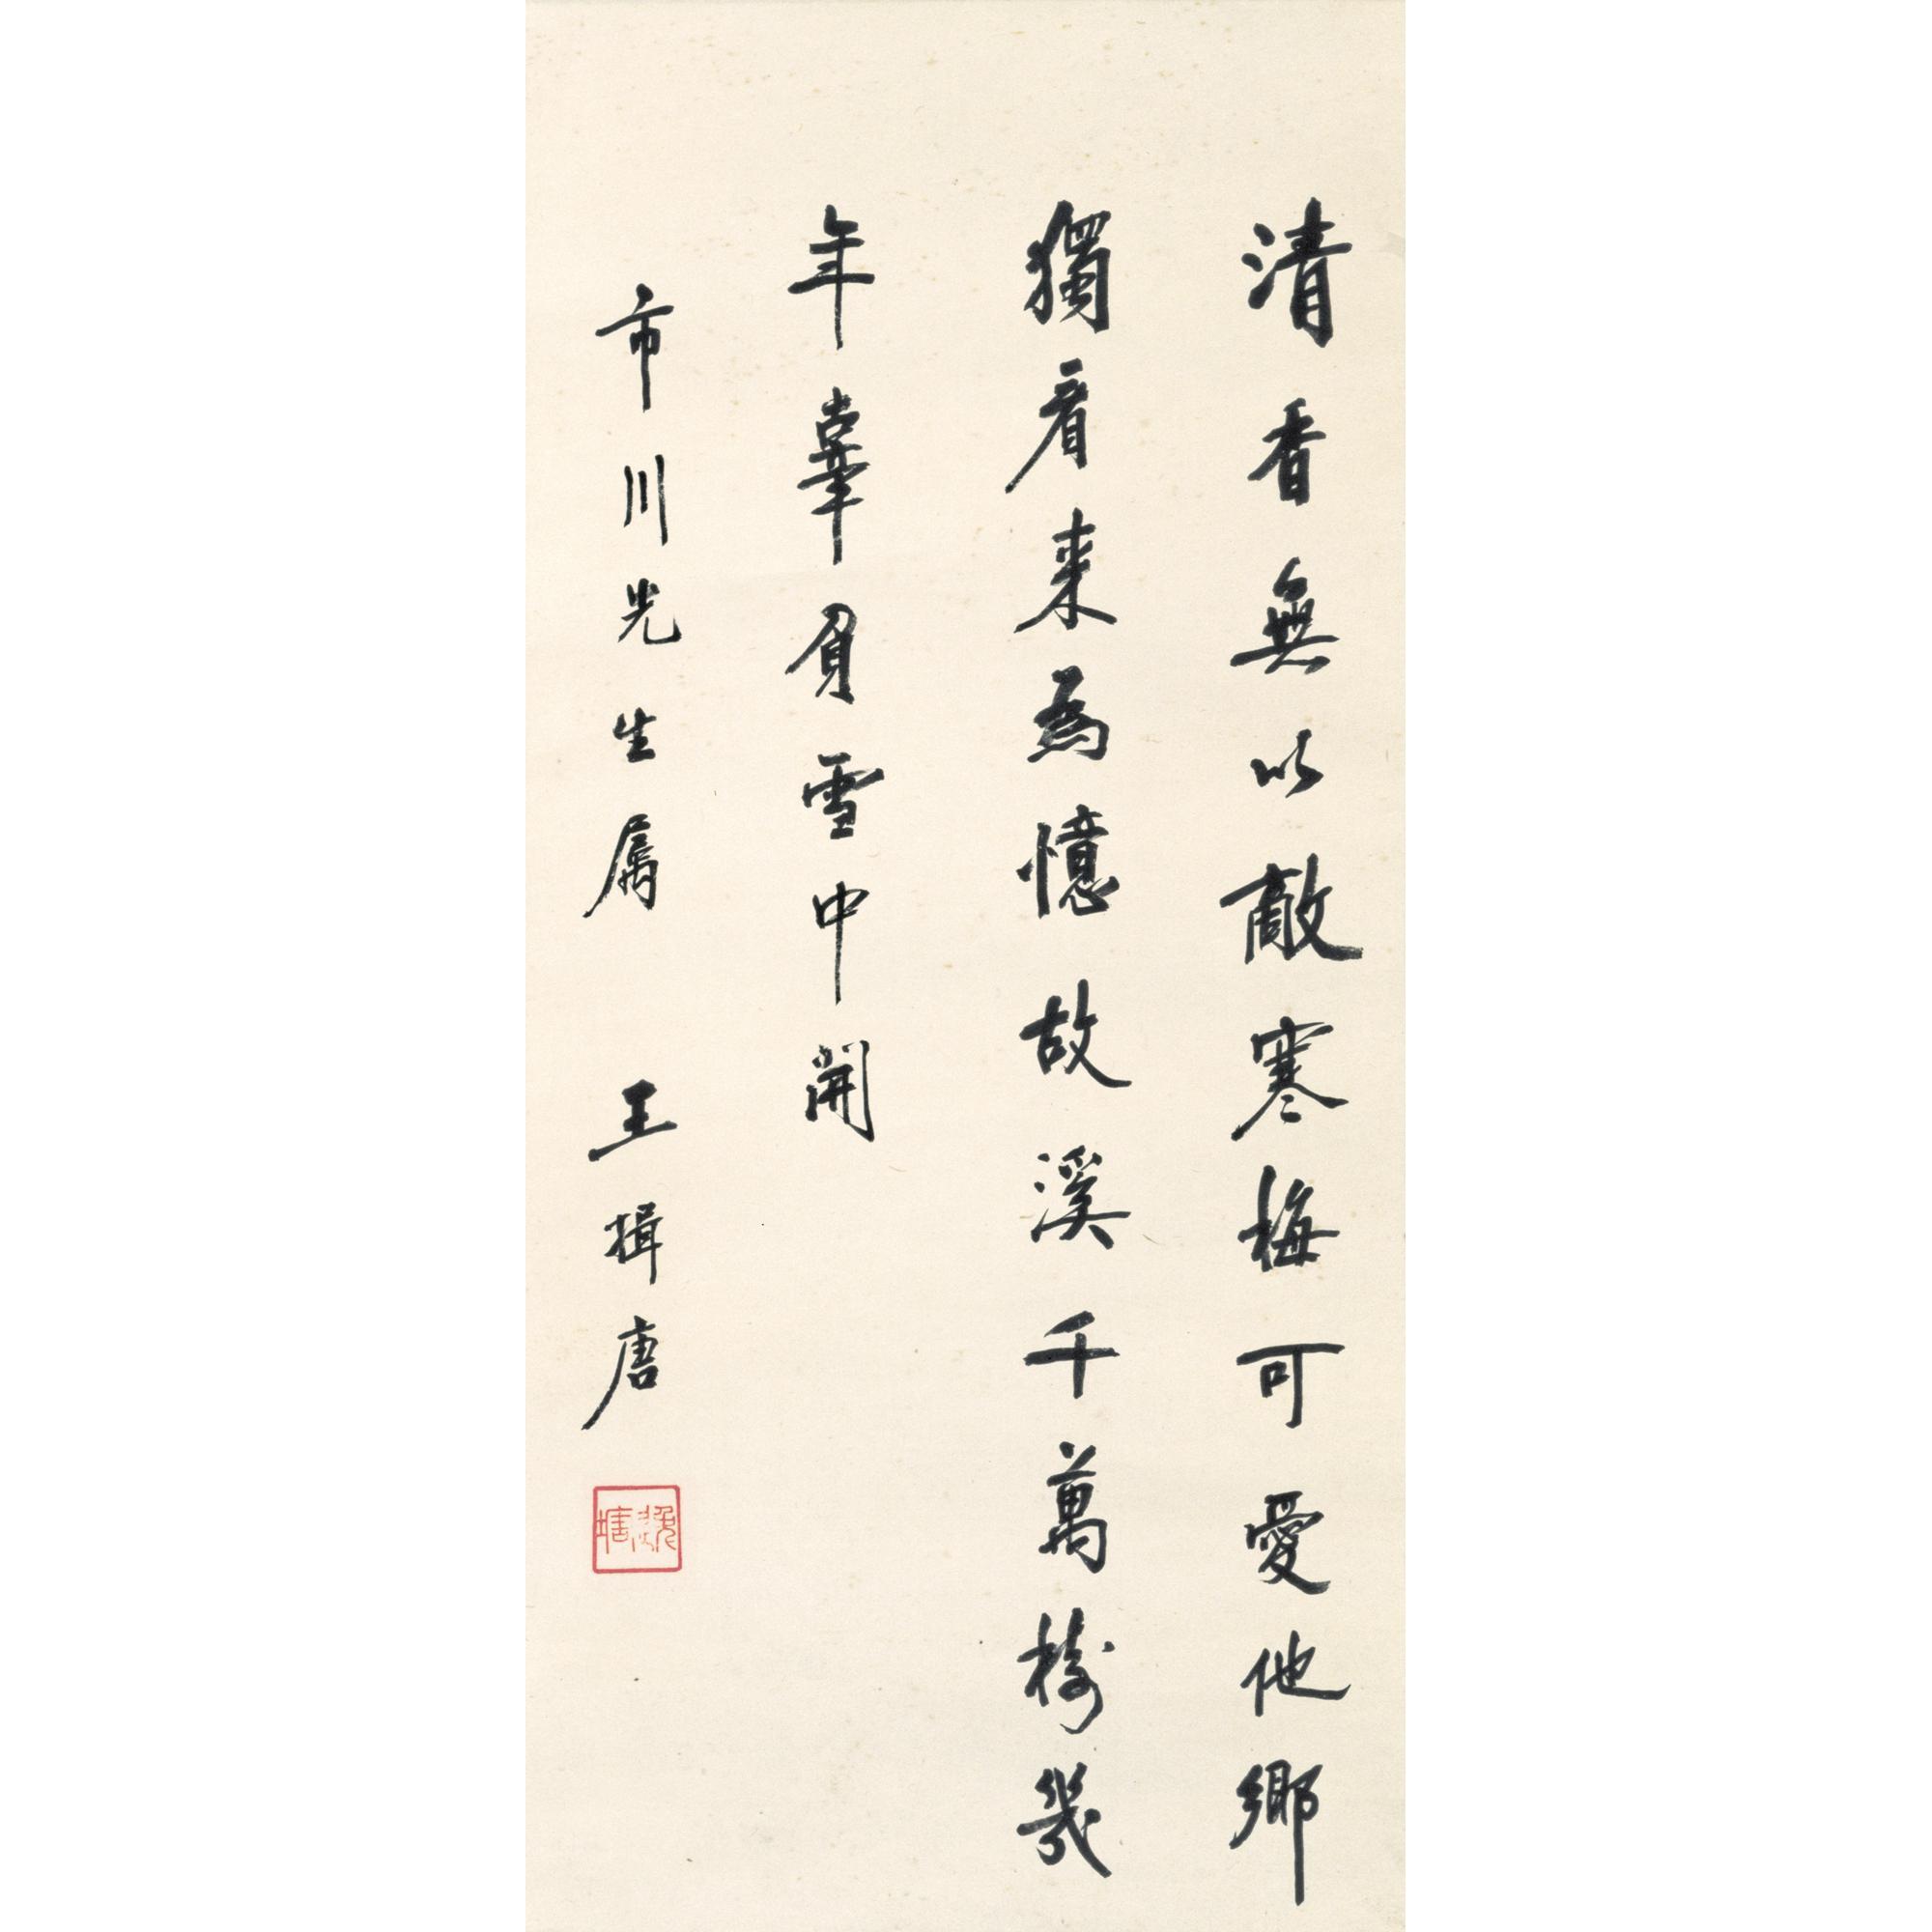 清香無以敵寒梅可愛他鄉
獨看來為憶故溪千萬樹幾
年辜負雪中開
市川先生属 王揖唐